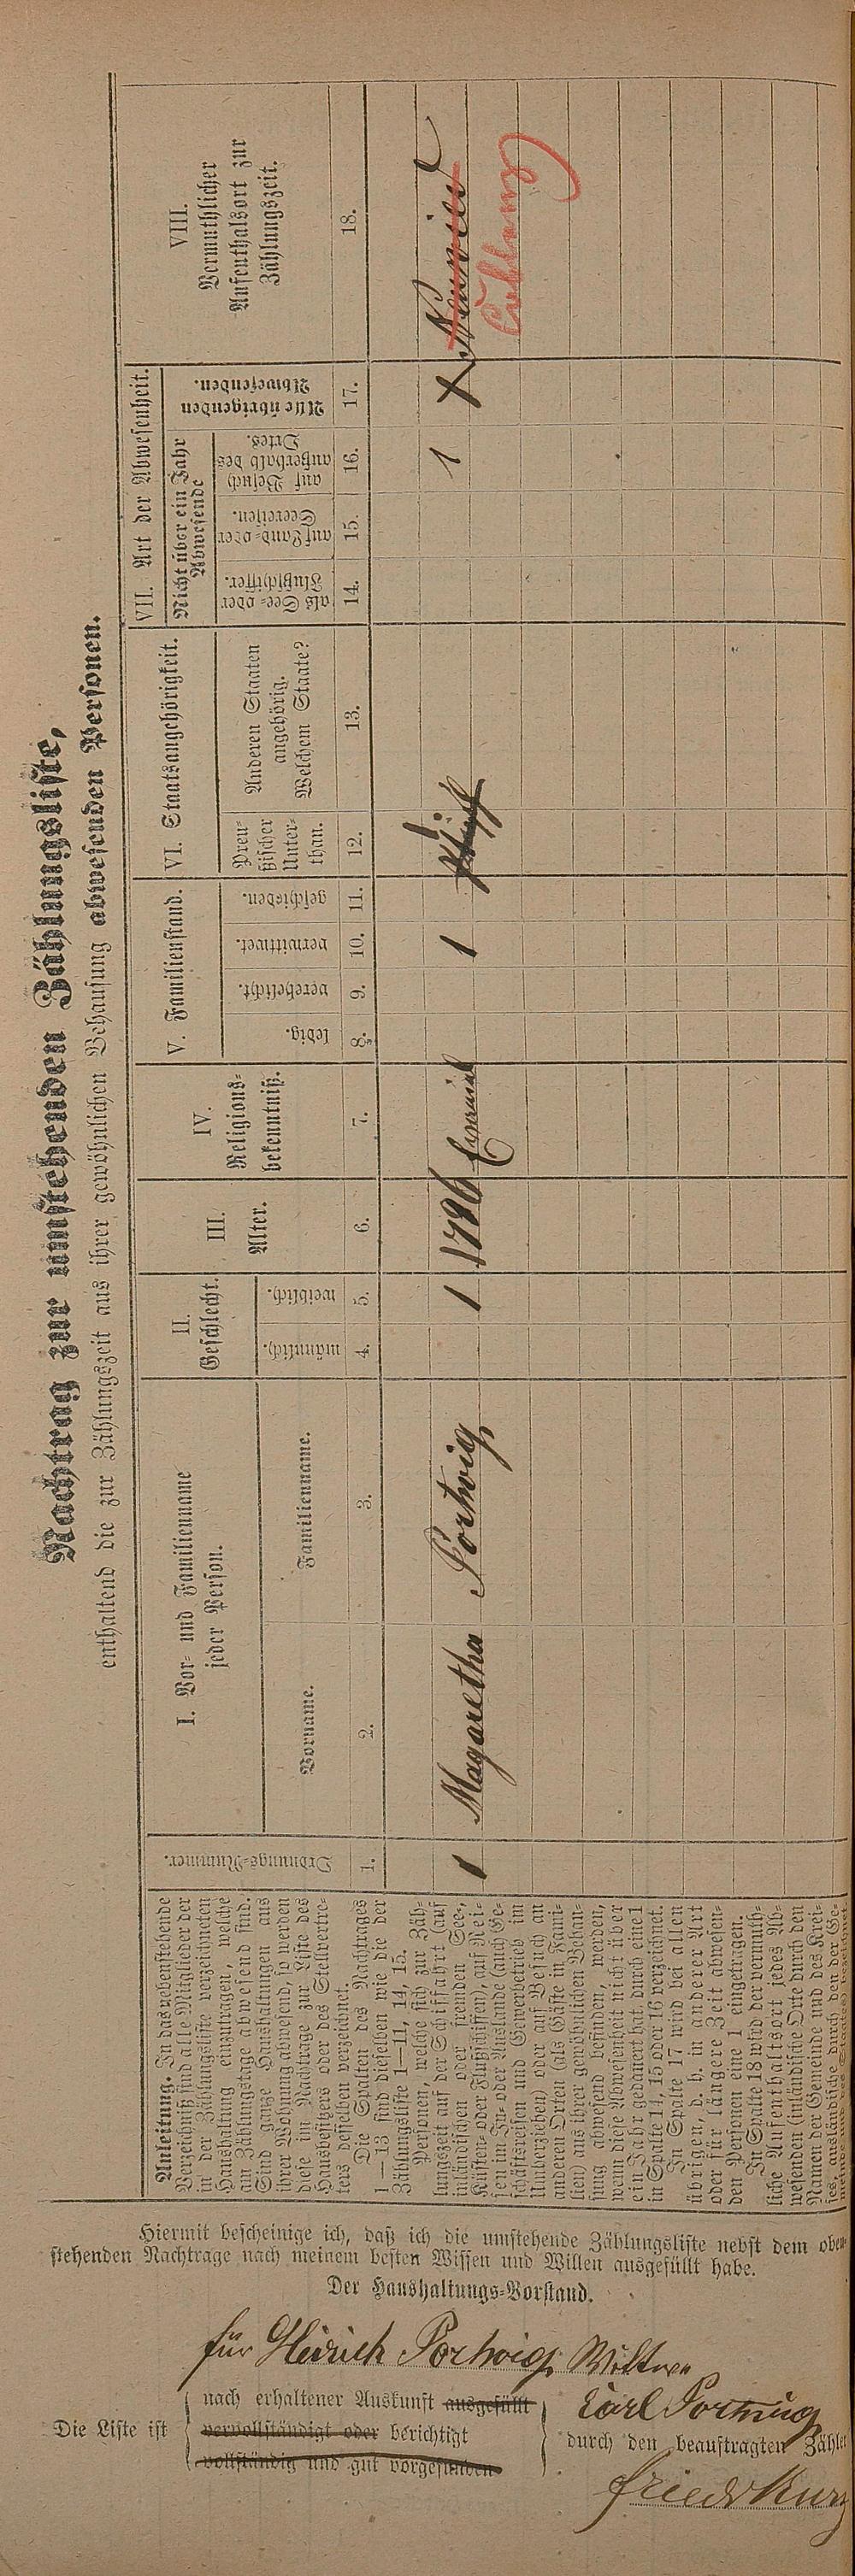 Nachtrag zur umstehenden Zählungsliste,
enthaltend die zur Zählungszeit aus ihrer gewöhnlichen Behausung abwesenden Personen.
Anleitung. In das nebenstehende
Verzeichniß sind alle Mitglieder der
in der Zählungsliste verzeichneten
Haushaltung einzutragen, welche
am Zählungstage abwesend sind.
Sind ganze Haushaltungen aus
ihrer Wohnung abwesend, so werden
diese im Nachtrage zur Liste des
Hausbesitzers oder des Stellvertre-
ters desselben verzeichnet.
Die Spalten des Nachtrages
1—13 sind dieselben wie die der
Zählungsliste 1—11, 14, 15.
Personen, welche sich zur Zäh-
lungszeit auf der Schifffahrt (auf
inländischen oder fremden See-,
Küsten- oder Flußschiffen), auf Rei-
sen im In- oder Auslande (auch Ge-
schäftsreisen und Gewerbetrieb im
Umherziehen) oder auf Besuch an
anderen Orten (als Gäste in Fami-
lien) aus ihrer gewöhnlichen Behau-
sung abwesend befinden, werden,
wenn diese Abwesenheit nicht über
ein Jahr gedauert hat, durch eine 1
in Spalte 14, 15 oder 16 verzeichnet.
In Spalte 17 wird bei allen
übrigen, d. h. in anderer Art
oder für längere Zeit abwesen-
den Personen eine 1 eingetragen.
In Spalte 18 wird der vermuth-
liche Aufenthaltsort jedes Ab-
wesenden (inländische Orte durch den
Namen der Gemeinde und des Krei-
ses, ausländische durch den der Ge-
meinde und des Staates) bezeichnet.
Ordnungs-Nummer.
I. Vor- und Familienname
jeder Person.
Vorname.
Familienname.
II.
Geschlecht.
männlich.
weiblich.
III.
Alter.
IV.
Religions-
bekenntniß.
V. Familienstand.
ledig.
verehelicht.
verwittwet.
geschieden.
VI. Staatsangehörigkeit.
Preu-
ßischer
Unter-
than.
Anderen Staaten
angehörig.
Welchem Staate?
VII. Art der Abwesenheit.
Nicht über ein Jahr
Abwesende
als See- oder
Flußschiffer.
auf Land- oder
Seereisen.
auf Besuch
außerhalb des
Ortes.
Alle übrigenden
Abwesenden.
VIII.
Vermuthlicher
Aufenthaltsort zur
Zählungszeit.
1. 2. 3. 4. 5. 6. 7. 8. 9. 10. 11. 12. 13. 14. 15. 16. 17. 18.
1 Magaretha Portwig 1 1796 1 1 1 Neuwied
Hiermit bescheinige ich, daß ich die umstehende Zählungsliste nebst dem oben-
stehenden Nachtrage nach meinem besten Wissen und Willen ausgefüllt habe.
Der Haushaltungs-Vorstand.
für Heirich Portwig Wittwe
Carl Portwig
Die Liste ist
nach erhaltener Auskunft ausgefüllt
vervollständigt oder berichtigt
vollständig und gut vorgefunden
durch den beauftragten Zähler
Friedr Kurz